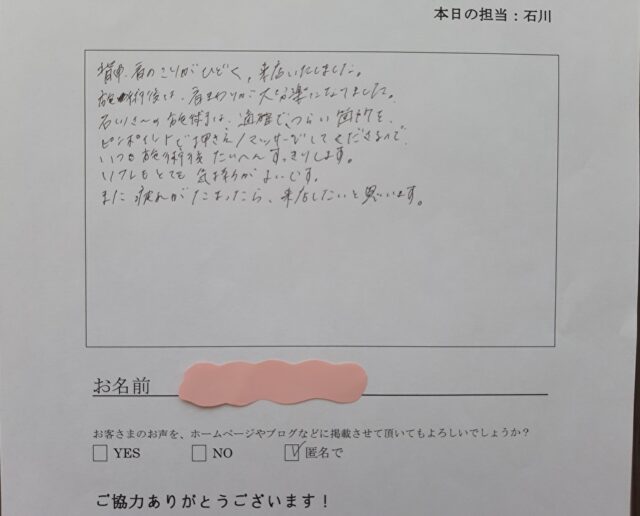 本日の担当：石川
背中、肩のこりがひどく、来店いたしました。
施術後は、肩まわりが大分楽になりました。
石川さんの施術は、適確で、つらい箇所を、
ピンポイントで押さえ/マッサージしてくださるので、
いつも施術後たいへんすっきりします。
リフレもとても気持ちがよいです。
また疲れがたまったら、来店したいと思います。
お名前
お客さまのお声を、ホームページやブログなどに掲載させて頂いてもよろしいでしょうか？
YES NO 匿名で
ご協力ありがとうございます！